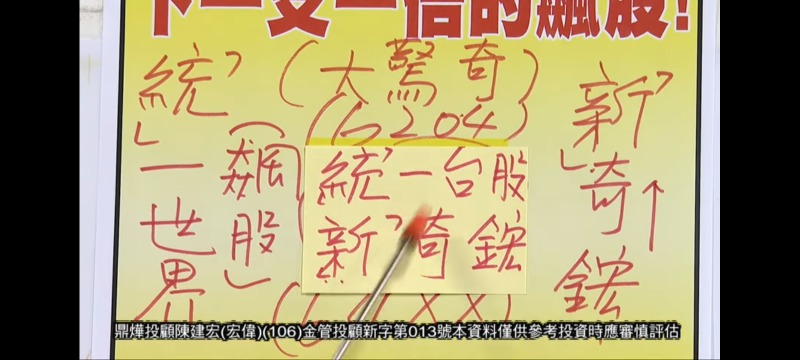 下一支一倍的飆股!
統 (大驚奇) 新
(6204)
「統」一世界
(飆股)
統一台股
新奇鋐
「新」奇↑鋐
(64XX)
鼎燁投顧陳建宏(宏偉)(106)金管投顧新字第013號本資料僅供參考投資時應審慎評估